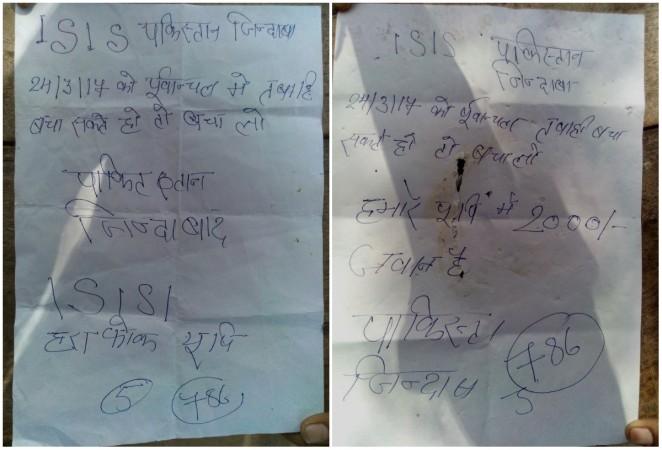 ISIS पकिस्तान जिन्दाबा
24/3/17 को पूर्वान्चल मे तबाहि
बचा सकते हो तो बचा लो
जिन्दाबाद
ISISI
5 786
ISIS पकिस्तान
जिन्दाबा
24/3/17 को पूर्वान्चल तबाही बचा
सकते हो तो बचा लो
हमारे में 2000/-
जवान है
पाकिस्ता
786
5